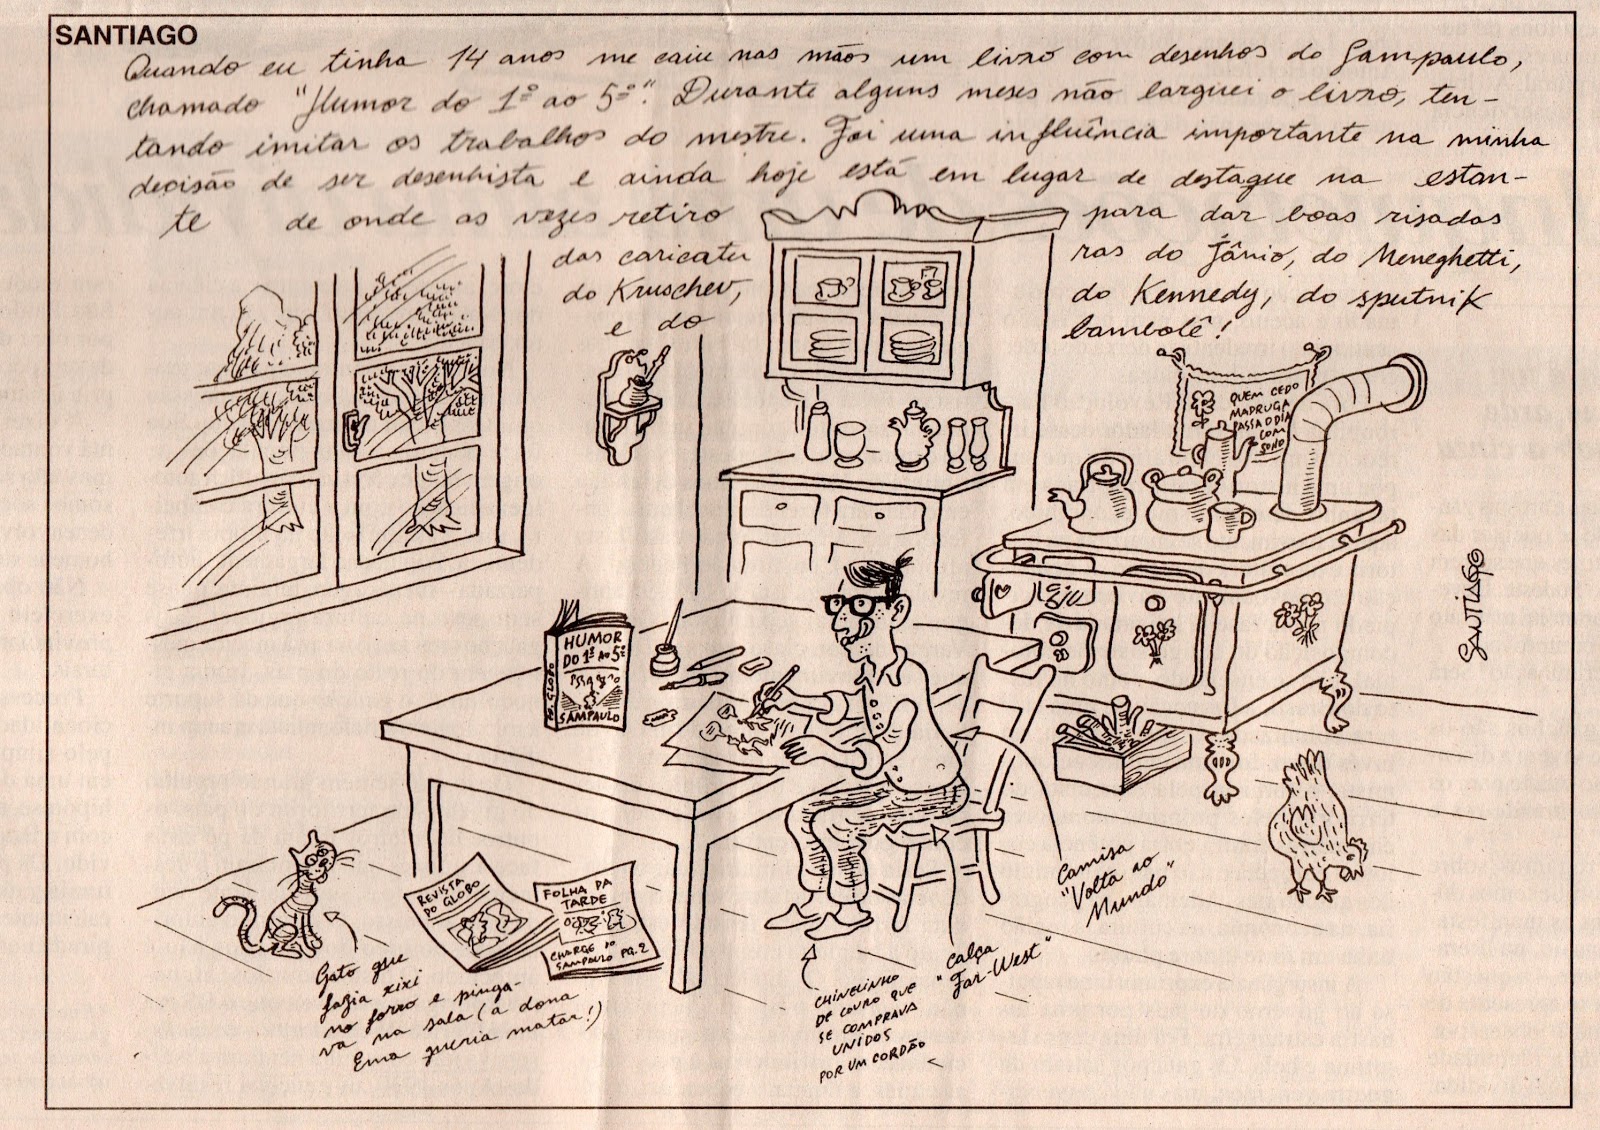 SANTIAGO
Quando eu tinha 14 anos me caiu nas mãos um livro com desenhos do Sampaulo,
chamado "Humor do 1º ao 5º". Durante alguns meses não larguei o livro, ten-
tando imitar os trabalhos do mestre. Foi uma influência importante na minha
decisão de ser desenhista e ainda hoje está em lugar de destaque na estan-
te de onde as vezes retiro para dar boas risadas
das caricatu ras do Jânio, do Meneghetti,
do Kruschev, do Kennedy, do sputnik
e do bambolê!
QUEM CEDO
MADRUGA
PASSA O DIA
COM
SONO
SANTIAGO
HUMOR
DO 1º AO 5º
SAMPAULO
ED. GLOBO
REVISTA
DO GLOBO
FOLHA DA
TARDE
CHARGE DO
SAMPAULO PG. 2
Gato que
fazia xixi
no forro e pinga-
va na sala (a dona
Ema queria matar!)
CHINELINHO
DE COURO QUE
SE COMPRAVA
UNIDOS
POR UM CORDÃO
calça
"Far-West"
Camisa
"Volta ao
Mundo"